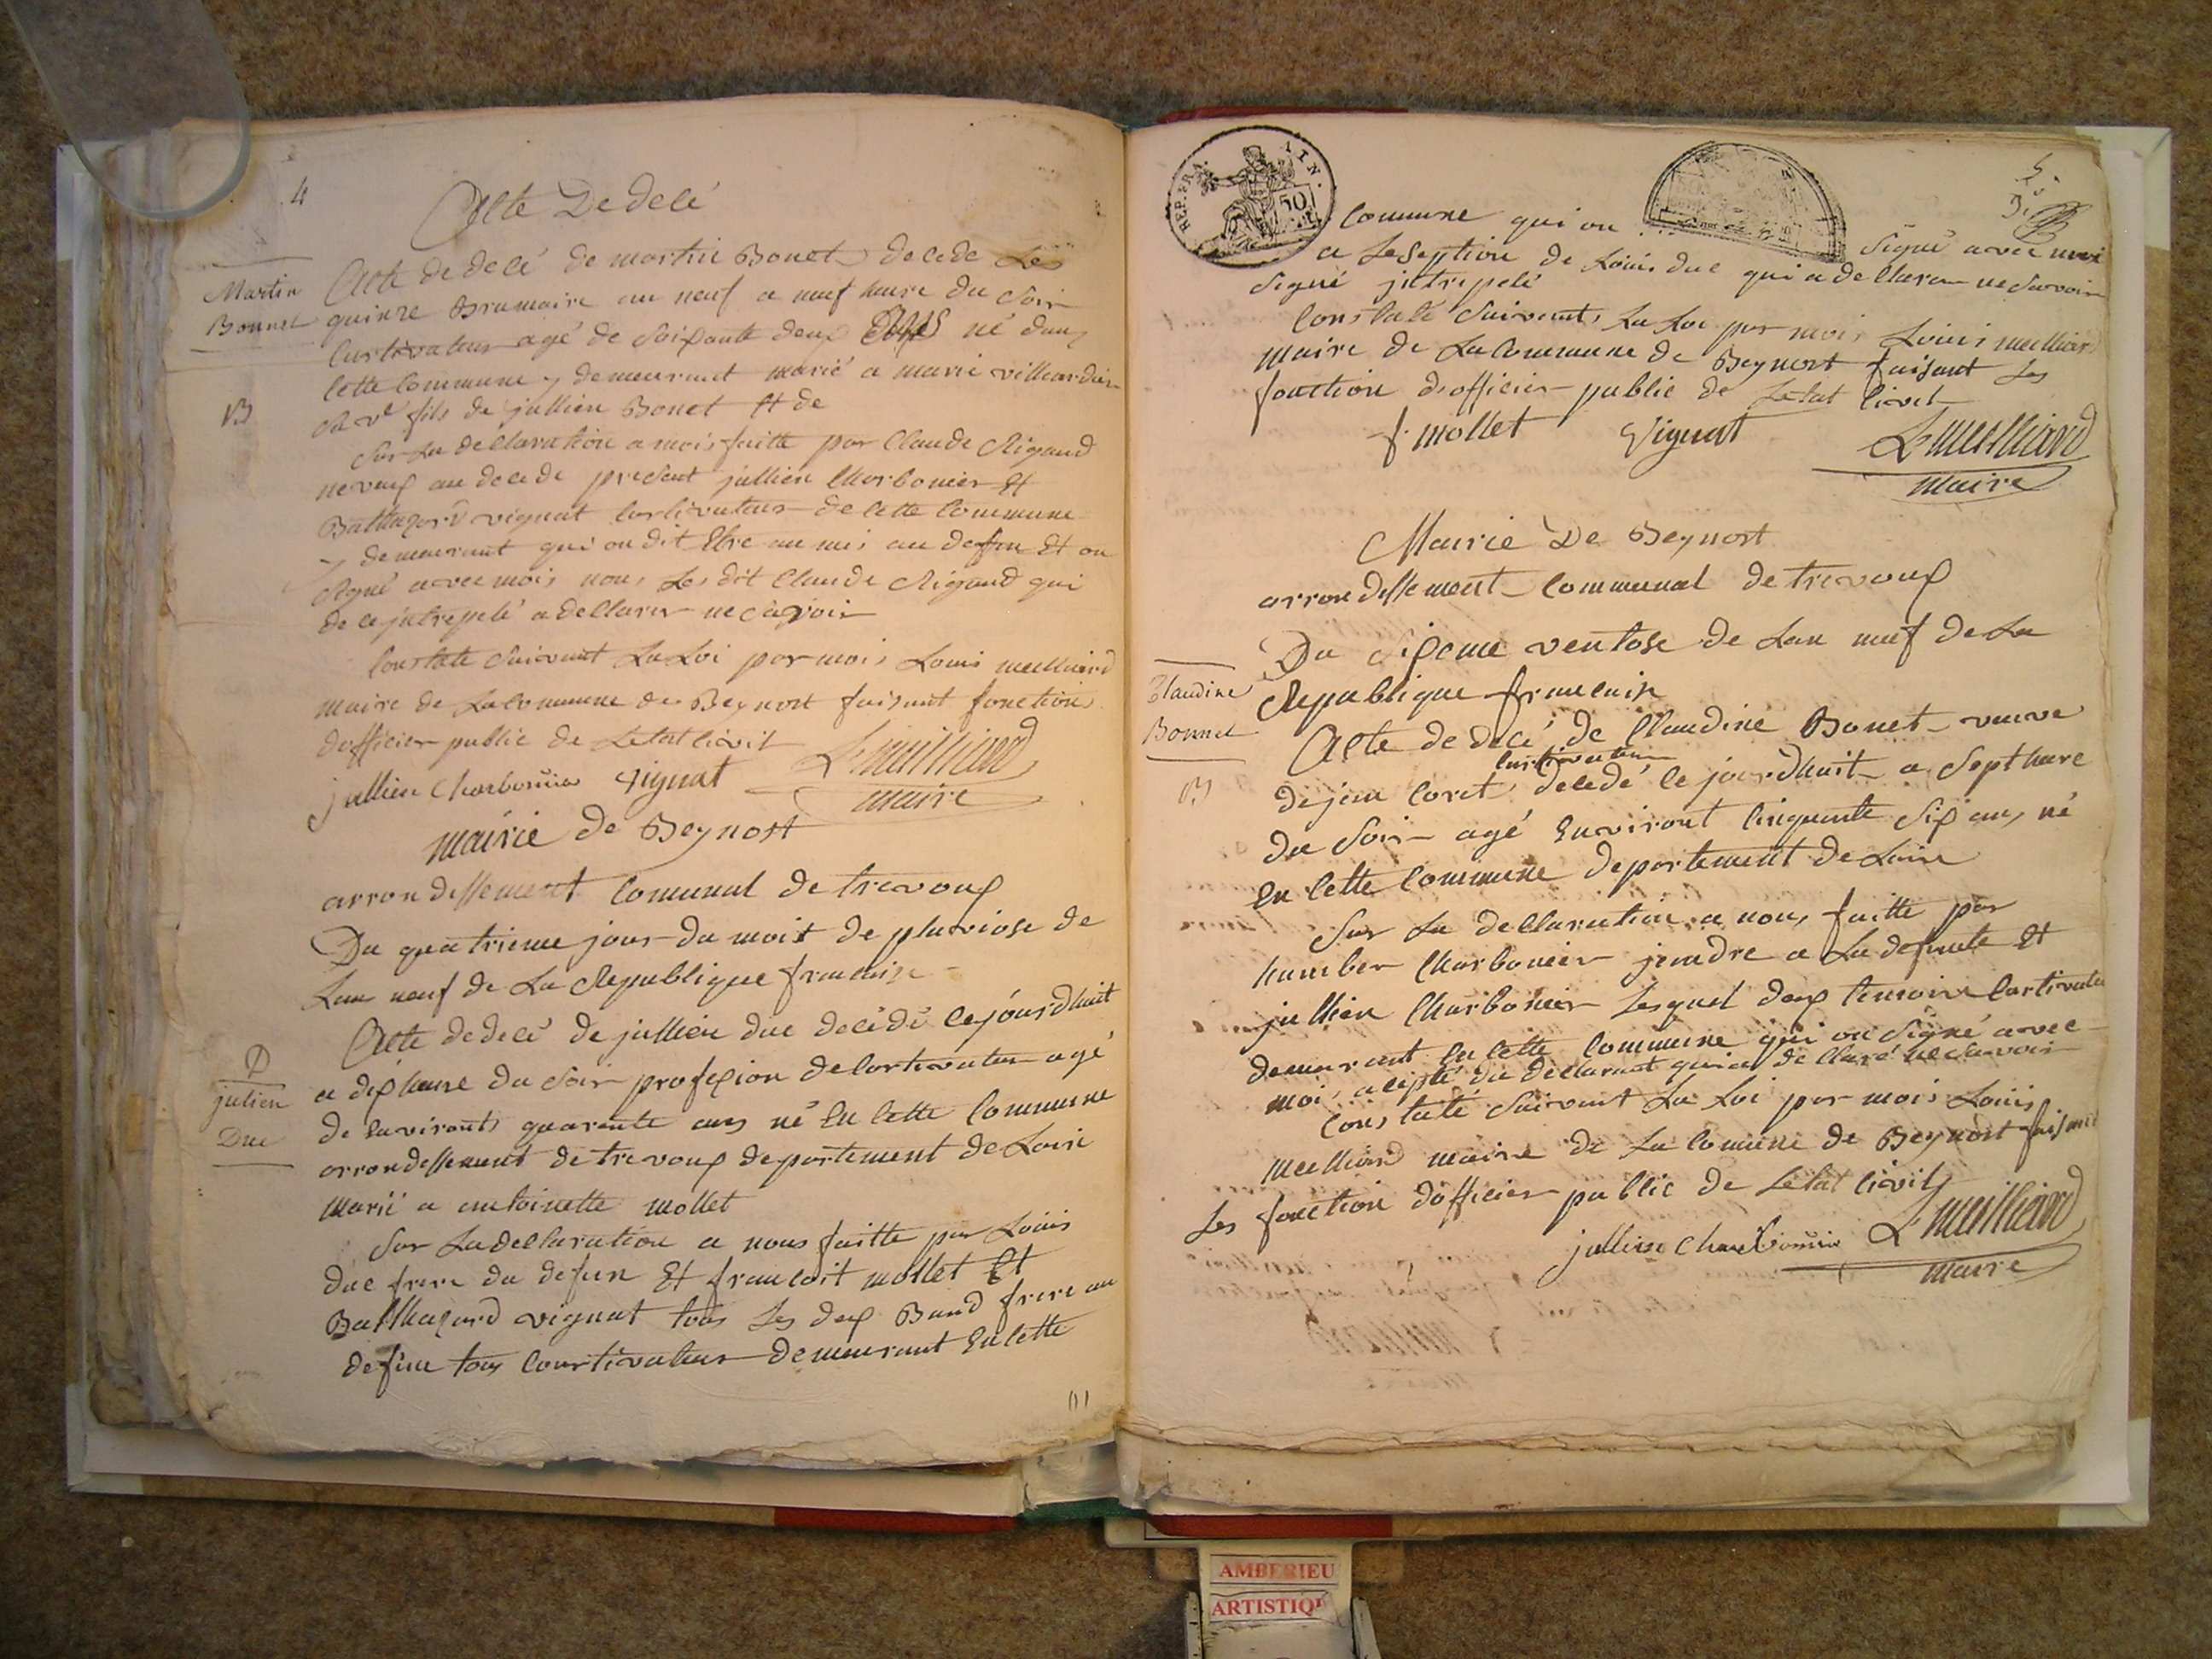 4
Acte De decé
Martin
Bonnet
B
Acte de decé de martin Bonet decede Les
quinze Brumaire an neuf a neuf heure du Soir
Curtivateur agé de Soixante deux ans né dans
Cette Commune y demeurant marié a marie
fils de jullien Bonet Et de
Sur La declaration a mois faitte par Claude Rigaud
neveux au decede present jullien Charbonier Et
Balthazard vignat Curtivateur de Cette Commune
y demeurant qui on dit Etre au defun Et on
Signé avec mois nous Les dit Claude Rigaud qui
de ce jntrepelé a declarer ne
Constate Suivant La Loi par mois Louis meilliard
maire de La Commune de Beynost faisant fonction
dofficier public de Letat civil
jullien Charbonnier vignat L meilliard
maire
mairie de Beynost
arrondissement Comunal de trevoux
Du quatrieme jour du mois de pluviose de
Lan neuf de La Republique francaise
D
julien
Duc
Acte de decé de jullien duc decédé cejourdhuit
a dix heure du Soir profexion de Cortivateur agé
de Environt quarante ans né En Cette Commune
arrondissement de trevoux departement de Lain
marié a antoinette mollet
Sur La declaration a nous faitte par Louis
duc frere du defun Et francoit mollet Et
Balthazard vignat tous Les dex Baud frere au
defun tous Courtivateur demeurant En Cette
REP. FRA. XIN.
50
5.
Commune qui on Signé avec moi
a Leseption de Louis duc qui a declarer ne Savoir
Signé jntrepelé
Constaté Suivant La Loi par mois Louis meilliard
maire de La Commune de Beynost faisant Les
fonction dofficier public de Letat Civil
f. mollet Vignat L meilliard
maire
Mairie De Beynost
arrondissement Communal de trevoux
Du Sixeme ventose de Lan neuf de La
Republique francaise
Claudine
Bonnet
B
Acte de decé de Claudine Bonet veuve
Curtivateur
de jean Coret decedé le jourdhuit a Sept heure
du Soir agé Environt Cinquante Six ans né
En Cette Commune departement de Lain
Sur La declaration a nous faitte par
humber Charbonier jendre a La defunte Et
jullien Charbonier Lesquel dex temoin Curtivateur
demeurant En Cette Commune qui on Signé avec
moi, a du declarant qui a declaré ne Savoir
Constaté Suivant La Loi par mois Louis
meilliard maire de La Comune de Beynost faisant
Les fonction dofficier public de Letat civil
jullien Charbonnier L meilliard
maire
AMBERIEU
ARTISTIQU